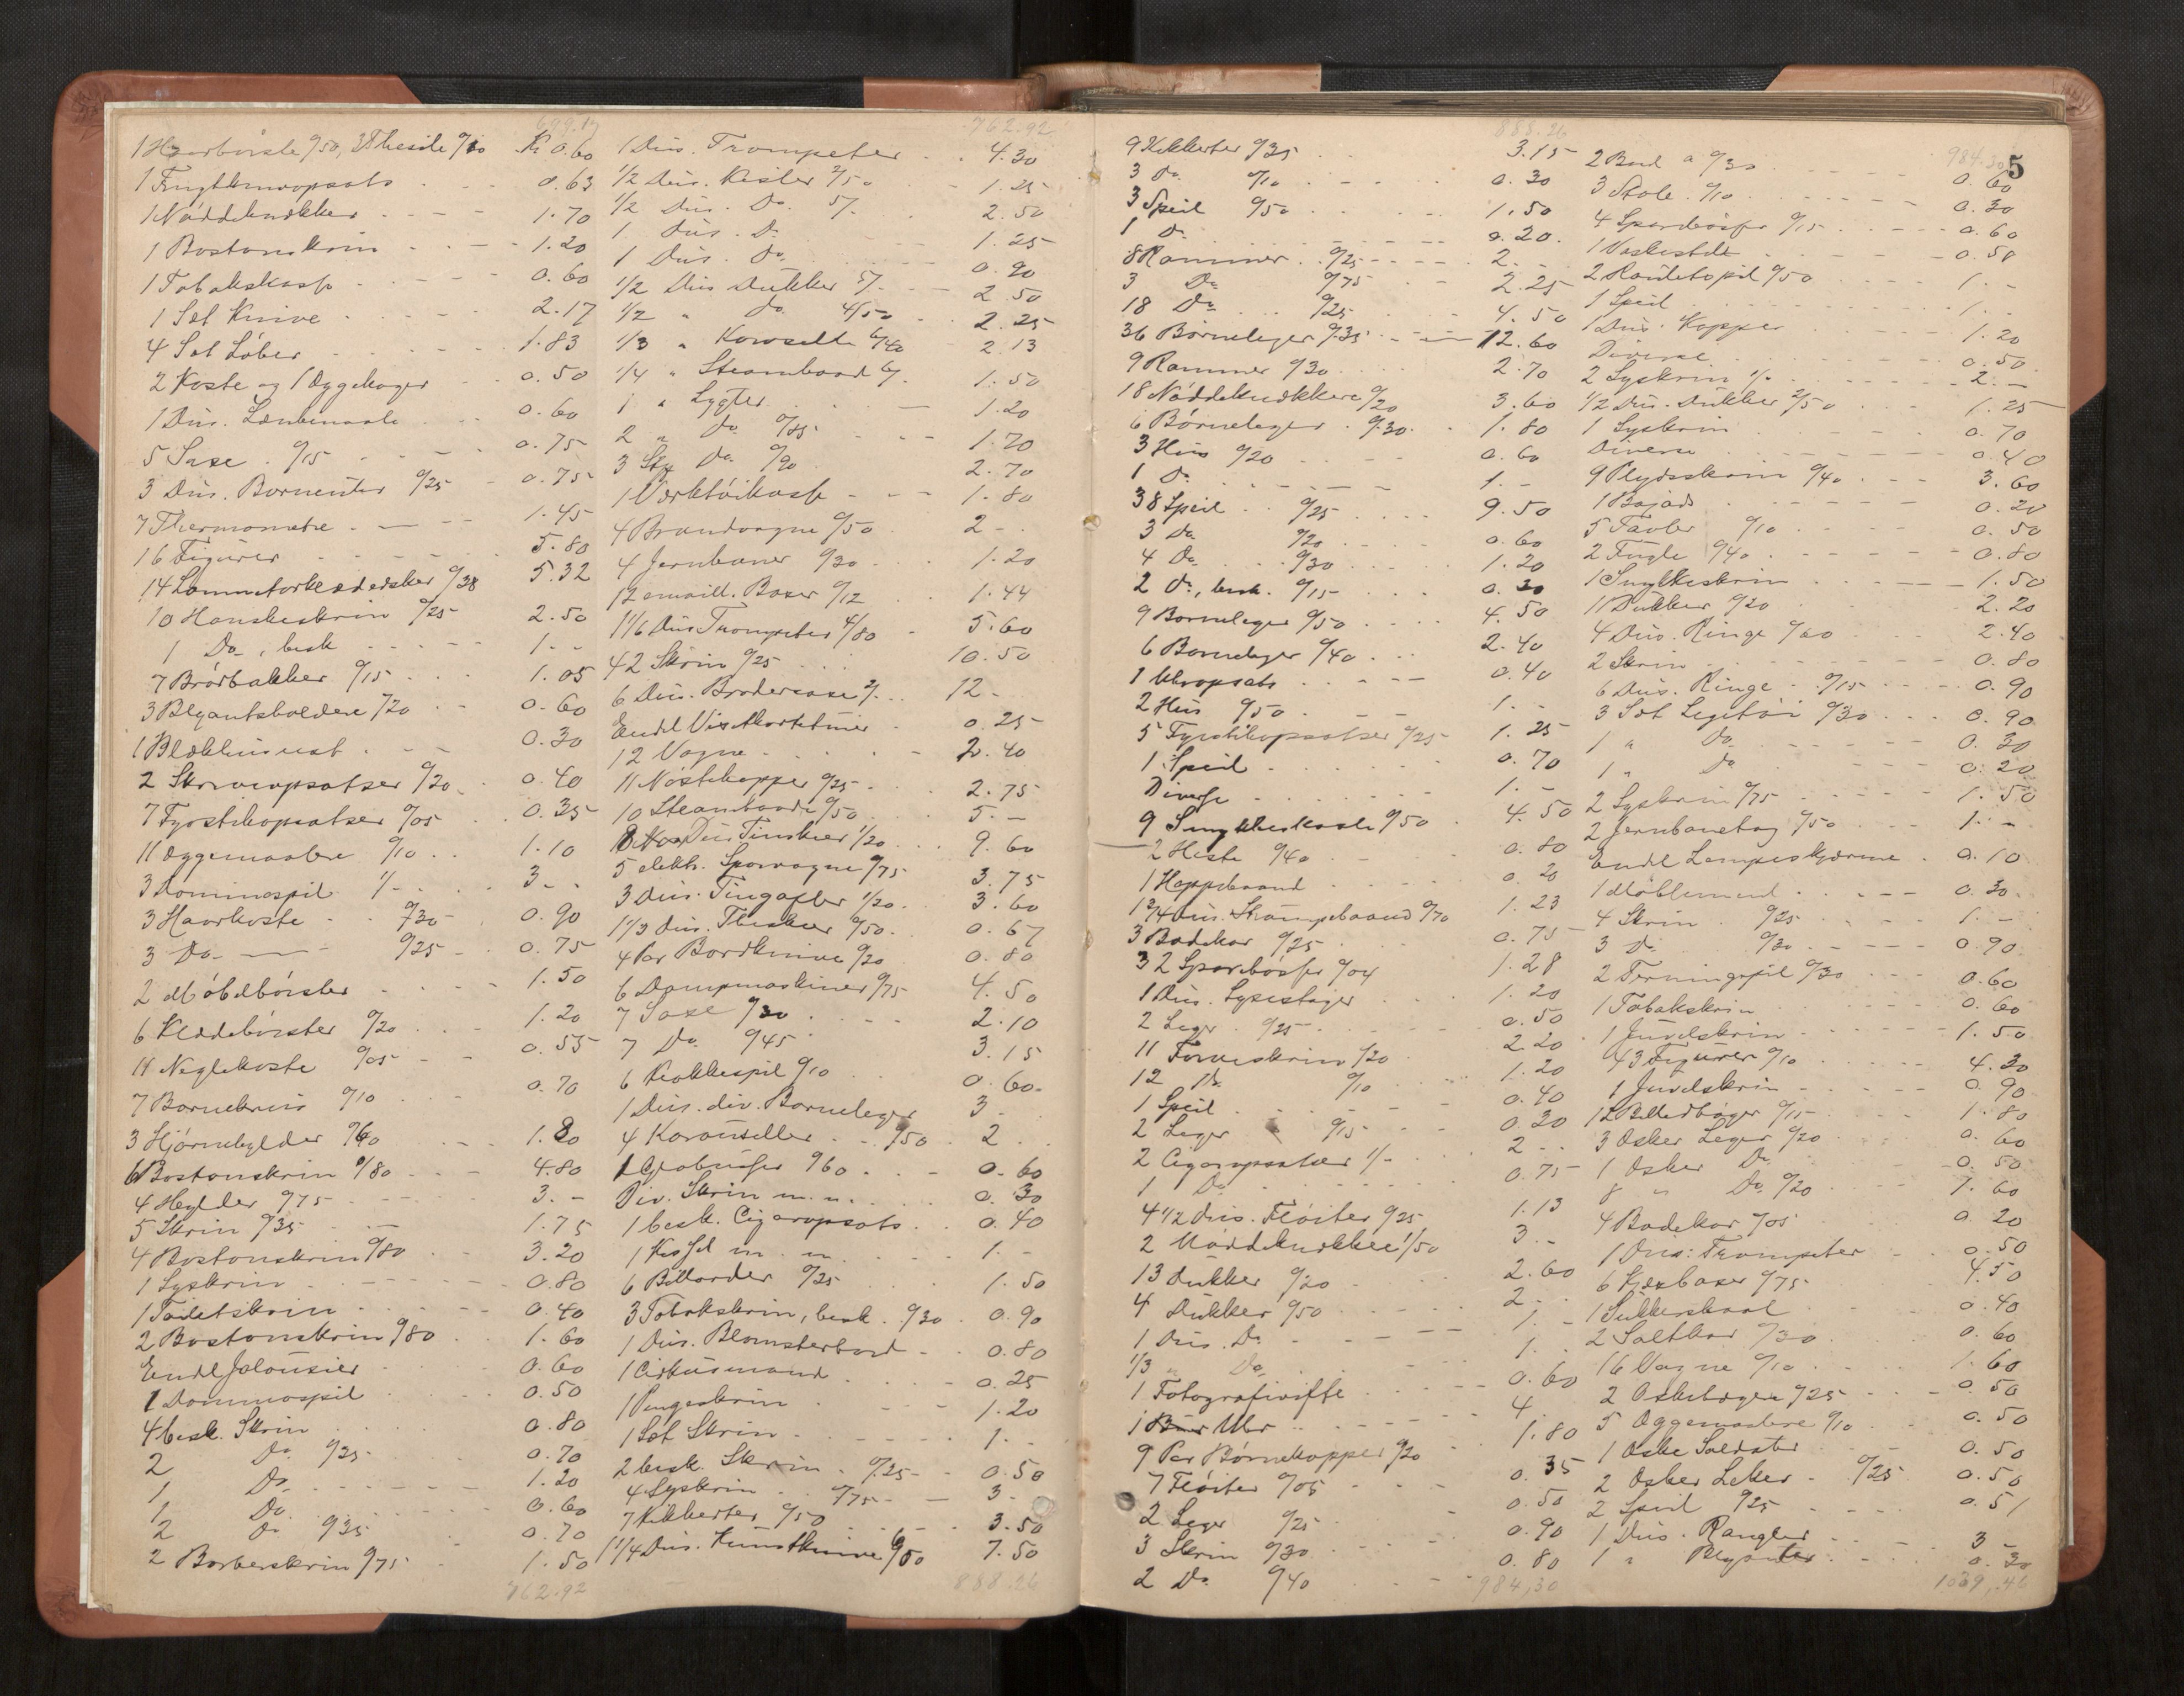 699.17
1 Haarbørste %50, 3 Thesile %10 Kr 0.60
1 Frugtknivopsats 0.63
1 Nøddeknækker 1.70
1 Bostonskrin 1.20
1 Tobakskasse 0.60
1 Sæt Knive 2.17
4 Sæt Løber 1.83
2 Koste og 1 Æggekoger 0.50
1 Dus. 0.60
5 Saxe %15 0.75
3 Dus. %25 0.75
7 Thermometre 1.45
16 Figurer 5.80
14 Lommetørklædeæsker %38 5.32
10 Hanskeskrin %25 2.50
1 Do., besk 1.-
7 Brødbakker %15 1.05
3 Blyantsholdere %20 0.60
1 Blækhus 0.30
2 Skriveopsatser %20 0.40
7 Fyrstikopsatser %05 0.35
11 Æggemaalere %10 1.10
3 Dominospil 1/- 3.-
3 Haarkoste %30 0.90
3 Do. %25 0.75
2 Møbelbørster 1.50
6 Klædebørster %20 1.20
11 Neglekoste %05 0.55
7 Børnekrus %10 0.70
3 Hjørnehylder %60 1.80
6 Bostonskrin %80 4.80
4 Hylder %75 3.-
5 Skrin %35 1.75
4 Bostonskrin %80 3.20
1 Syskrin 0.80
1 Toiletskrin 0.40
2 Bostonskrin %80 1.60
Endl Jalousier 0.60
1 Dominospil 0.50
4 besk. Skrin 0.80
2 Do. %25 0.70
1 Do. 1.20
1 Do. 0.60
2 Do %35 0.70
2 Barberskrin %75 1.50
762.92
762.92
1 Dus. Trompeter 4.30
1/2 Dus. Kister 2/50 1.25
1/2 Dus. Do. 5/- 2.50
1 Dus. Do 1.25
1 Dus. Do. 0.90
1/2 Dus Dukker 5/- 2.50
1/2 " do. 4/50 2.25
1/3 " 6/40 2.13
1/4 " Steambaad 6/- 1.50
1 " Lygter 1.20
2 " do. %85 1.70
3 Stk Do. %90 2.70
1 Værktøikasse 1.80
4 Brandvogne %50 2.-
4 Jernbaner %30 1.20
12 emaill. Baser %12 1.44
1 1/6 Dus Trompeter 4/80 5.60
42 Skrin %25 10.50
6 Dus. Brodersaxe 2/- 12.-
Endel Visitkortetuier 0.25
12 Vogne 2.40
11 Nøstekopper %25 2.75
10 Steambaade %50 5.-
8 Dus Tinskeer 1/20 9.60
5 elektr. Sporvogne %75 3.75
3 Dus. Tingafler 1/20 3.60
1 1/3 Dus. Theskeer %50 0.67
4 Par Bordknive %20 0.80
6 Dampmaskiner %75 4.50
7 Saxe %30 2.10
7 Do %45 3.15
6 Klokkespil %10 0.60
1 Dus. div. Børneleger 3.-
4 Karouseller %50 2.-
1 %60 0.60
Div. Skrin m.m. 0.30
1 besk. Cigaropsats 0.40
1 m. m. 1.-
6 Billarder %25 1.50
3 Tobakskrin, besk. %30 0.90
1 Dus. Blomsterbord 0.80
1 Cirkusmand 0.25
1 Pengeskrin 1.20
1 Sæt Skrin 1.-
2 besk. Skrin %25 0.50
4 Syskrin %75 3.-
7 Kikkerter %50 3.50
1 1/4 Dus. Kunstknive 6/50 7.50
888.26
888.26
9 Kikkerter %35 3.15
3 Do. %10 0.30
3 Speil %50 1.50
1 Do. 0.20
8 Rammer %25 2.-
3 Do. %75 2.25
18 Do. %25 4.50
36 Børneleger %35 12.60
9 Rammer %30 2.70
18 Nøddeknækkere %20 3.60
6 Børneleger %30 1.80
3 Hus %20 0.60
1 Do. 1.-
38 Speil %25 9.50
3 Do. %20 0.60
4 Do. %30 1.20
2 Do., besk. %15 0.30
9 Børneleger %50 4.50
6 Børneleger %40 2.40
1 Uhropsats 0.40
2 Hus %50 1.-
5 Fyrstikopsatser %25 1.25
1 Speil 0.70
Diverse 1.-
9 Smykkeskaale %50 4.50
2 Heste %40 0.80
1 Hoppebaand 0.20
1 3/4 Dus. Strømpebaand %70 1.23
3 Badekar %25 0.75
32 Sparebøsser %04 1.28
1 Dus. Lysestager 1.20
2 Leger %25 0.50
11 Farveskrin %20 2.20
12 Do. %10 1.20
1 Speil 0.40
2 Leger %15 0.30
2 Cigaropsatser 1/- 2.-
1 Do. 0.75
4 1/2 Dus. Fløiter %25 1.13
2 Nøddeknækkere 1/50 3.-
13 Dukker %20 2.60
4 Dukker %50 2.-
1 Dus. Do. 1.-
1/3 Do. 1.
1 Fotografivifte 0.60
1 Uhr 4.
9 Par Børnekopper %20 1.80
7 Fløiter %05 0.35
2 Leger %25 0.50
3 Skrin %30 0.90
2 Do. %40 0.80
984,30
984.30 5
2 Bord a %30 0.60
3 Stole %10 0.30
4 Sparebøsser %15 0.60
1 Vaskestel 0.50
2 Rouletspil %50 1.-
1 Speil 1.-
1 Dus. Kopper 1.20
Diverse 0.50
2 Syskrin 1/- 2.-
1/2 Dus. Dukker 2/50 1.25
1 Syskrin 0.70
Diverse 0.40
9 Plydsskrin %40 3.60
1 Bajads 0.20
5 Tavler %10 0.50
2 Fugle %40 0.80
1 Smykkeskrin 1.50
11 Dukker %20 2.20
4 Dus. Ringe %60 2.40
2 Skrin 0.80
6 Dus. Ringe %15 0.90
3 Sæt Legetøi %30 0.90
1 " Do. 0.30
1 " Do 0.20
2 Syskrin %75 1.50
2 Jernbanetog %50 1.-
Endl Lampeskjærme 0.10
1 Møblement 0.30
4 Skrin %25 1.-
3 Do %30 0.90
2 Terningspil %30 0.60
1 Tobakskrin 0.60
1 Juvelskrin 1.50
43 Figurer %10 4.30
1 Juvelskrin 0.90
12 Billedbøger %15 1.80
3 Æsker Leger %20 0.60
1 Æsker Do. 0.50
8 " Do. %20 1.60
4 Badekar %05 0.20
1 Dus: Trompeter 0.50
6 Kjexbaser %75 4.50
1 Sukkerskaal 0.40
2 Saltkar %30 0.60
16 Vogne %10 1.60
2 Askebægre %25 0.50
5 Æggemaalere %10 0.50
1 Æske Soldater 0.50
2 Æsker Leker %25 0.50
2 Speil %25 0.51
1 Dus. Rangler 3.-
1 " Blyanter 0.30
1039,46